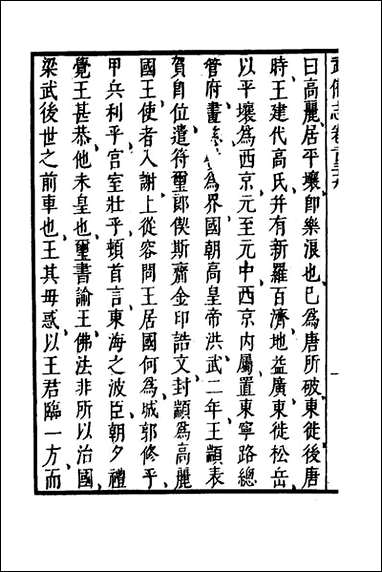 武備志卷
曰高麗居平壤卽樂浪也已為唐所破東徙後唐
時王建代高氏并有新羅百濟地益廣東徙松岳
以平壤為西京元至元中西京内屬置東寧路總
管府畫慈 為界國朝高皇帝洪武二年王顓表
賀自位遣符璽郎偰斯齎金印誥文封顓為高麗
國王使者入謝上從容問王居國何為城郭修乎
甲兵利乎宫室壯乎頓首言東海之波臣朝夕禮
覺王甚恭他未皇也璽書諭王佛法非所以治國
梁武後世之前車也王其毋惑以王君臨一方而